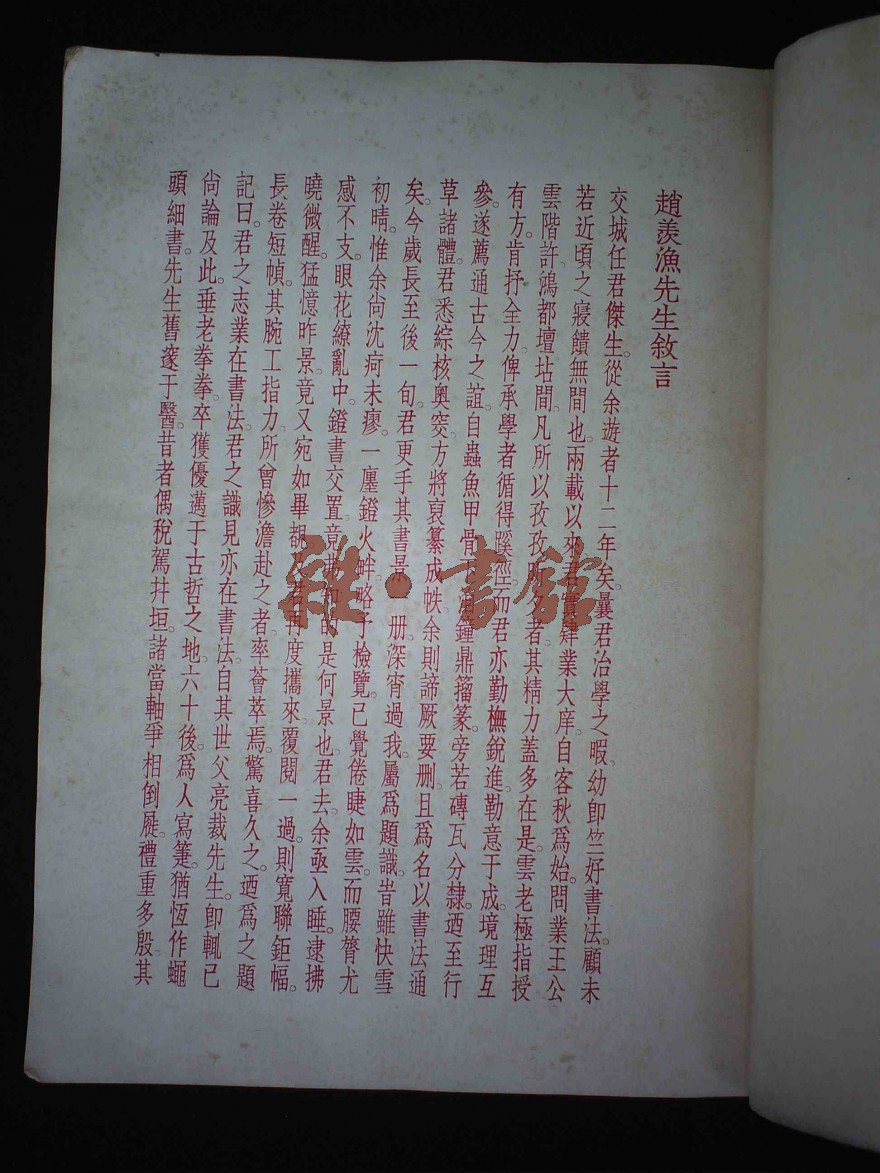 趙羨漁先生敘言
交城任君傑生。從余遊者十二年矣。曩君治學之暇。幼卽竺好書法。顧未
若近頃之寢饋無間也。兩載以來君實肄業大庠。自客秋爲始。問業王公
雲階許鴻都壇坫間。凡所以孜孜者其精力蓋多在是。雲老極指授
有方。肯抒全力。俾承學者循得蹊徑。而君亦勤橅銳進。勒意于成境理互
參。遂薦通古今之誼。自蟲魚甲骨鐘鼎籀篆。旁若磚瓦分隸。迺至行
草諸體。君悉綜核奧窔方將裒纂成帙。余則諦厥要刪。且爲名以書法通
矣。今歲長至後一旬。君更手其書景冊。深宵過我。屬爲題識。旹雖快雪
初晴。惟余尙沈疴未瘳。一廛鐙火畔。略予檢覽。已覺倦睫如雲。而腰膂尤
感不支。眼花繚亂中。鐙書交置。竟是何景也。君去。余亟入睡。逮拂
曉微醒。猛憶昨景。竟又宛如畢覩。再度攜來。覆閱一過。則寬聯鉅幅。
長卷短幀。其腕工指力。所曾慘澹赴之者。率薈萃焉。驚喜久之。迺爲之題
記曰。君之志業在書法。君之識見亦在書法。自其世父亮裁先生。卽輒已
尙論及此。垂老拳拳。卒獲優邁于古哲之地。六十後。爲人寫箑。猶恆作蠅
頭細書。先生舊邃于醫。昔者偶稅駕幷垣。諸當軸爭相倒屣。禮重多殷。其
雜·書館